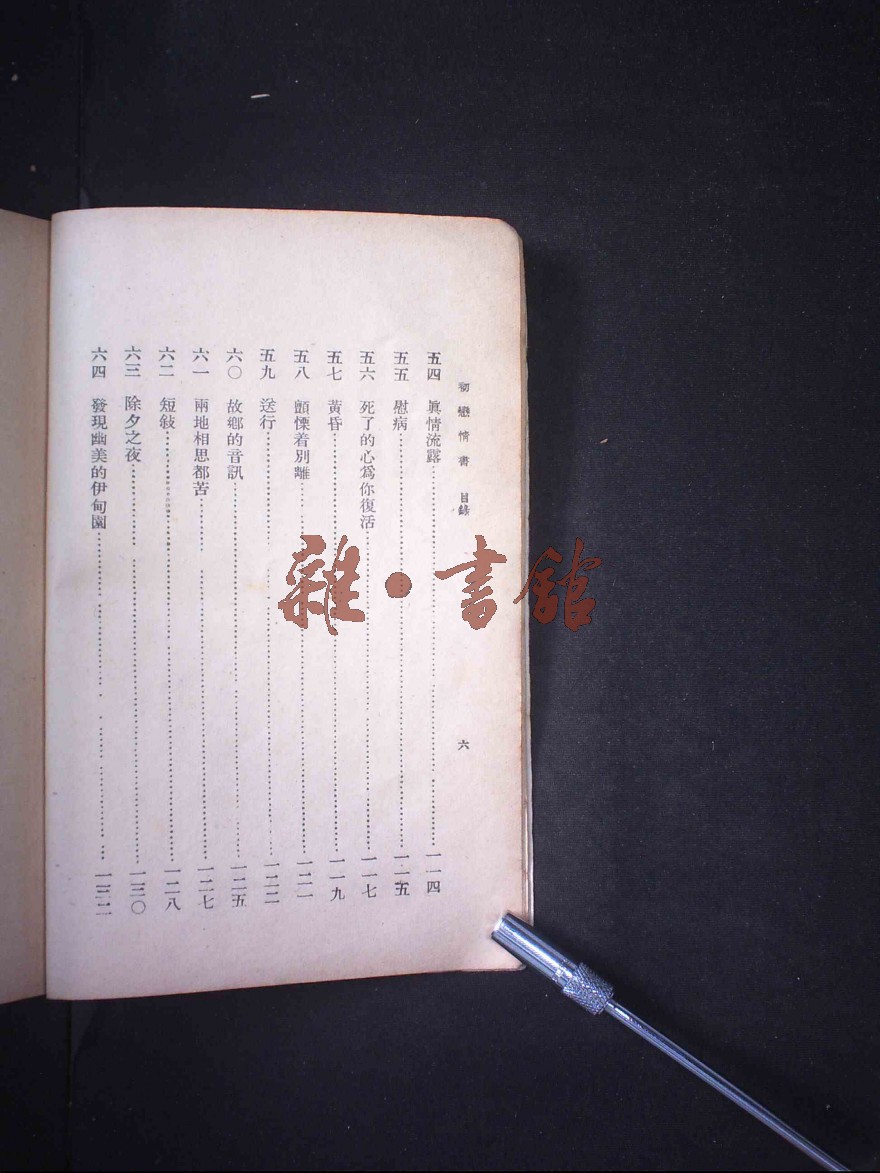 初戀情書 目錄 六
五四 眞情流露 一一四
五五 慰病 一一五
五六 死了的心爲你復活 一一七
五七 黃昏 一一九
五八 顫慄着別離 一二一
五九 送行 一二二
六〇 故鄉的音訊 一二五
六一 兩地相思都苦 一二七
六二 短敍 一二八
六三 除夕之夜 一三〇
六四 發現幽美的伊甸園 一三二
雜·書館